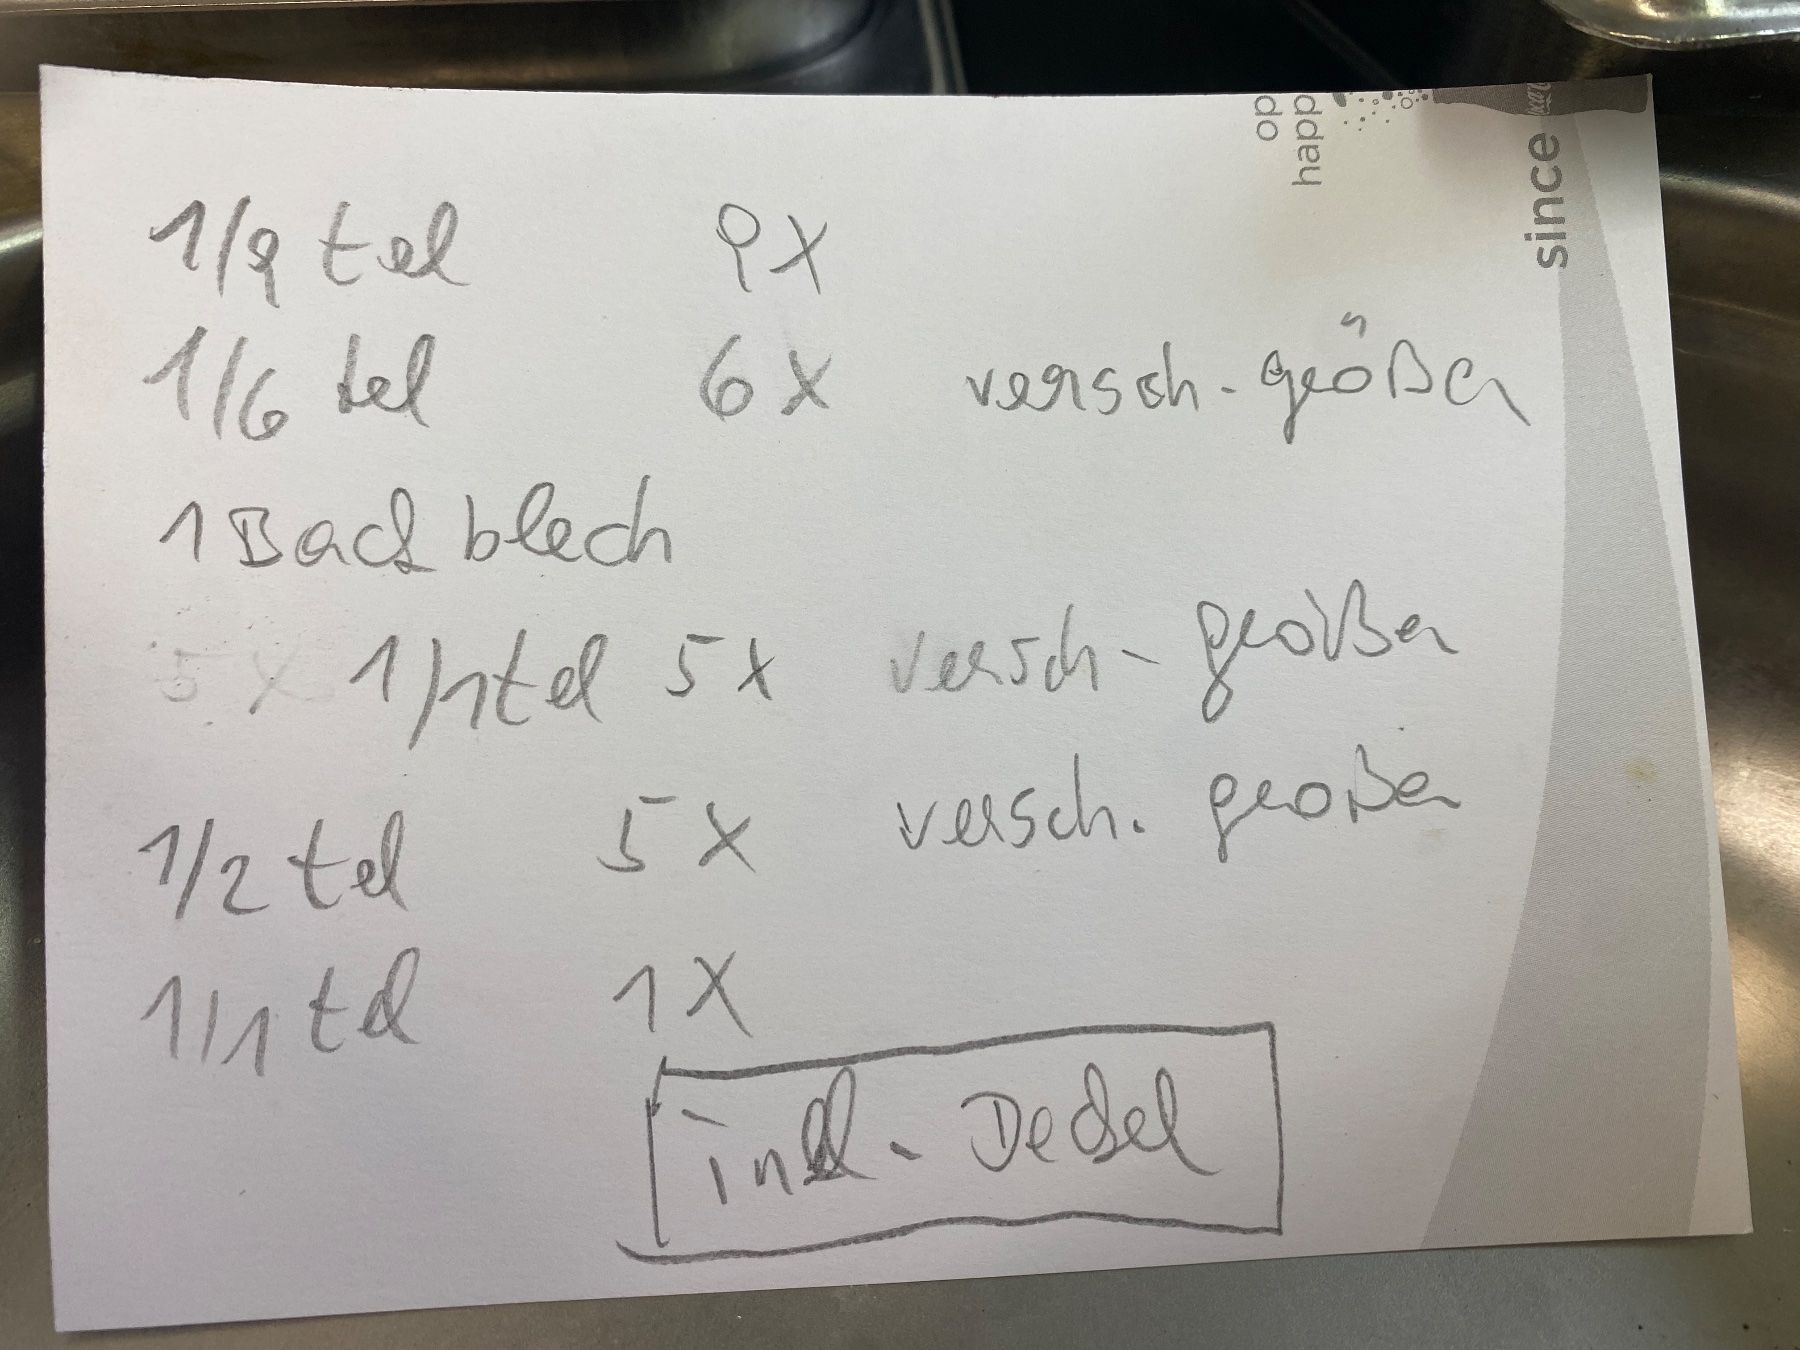 1/9 tel 9X
1/6 tel 6X versch. größen
1 Backblech
5 X 1/1 tel 5X versch. größen
1/2 tel 5X versch. großen
1/1 tel 1X
inkl. Deckel
op
happ
since